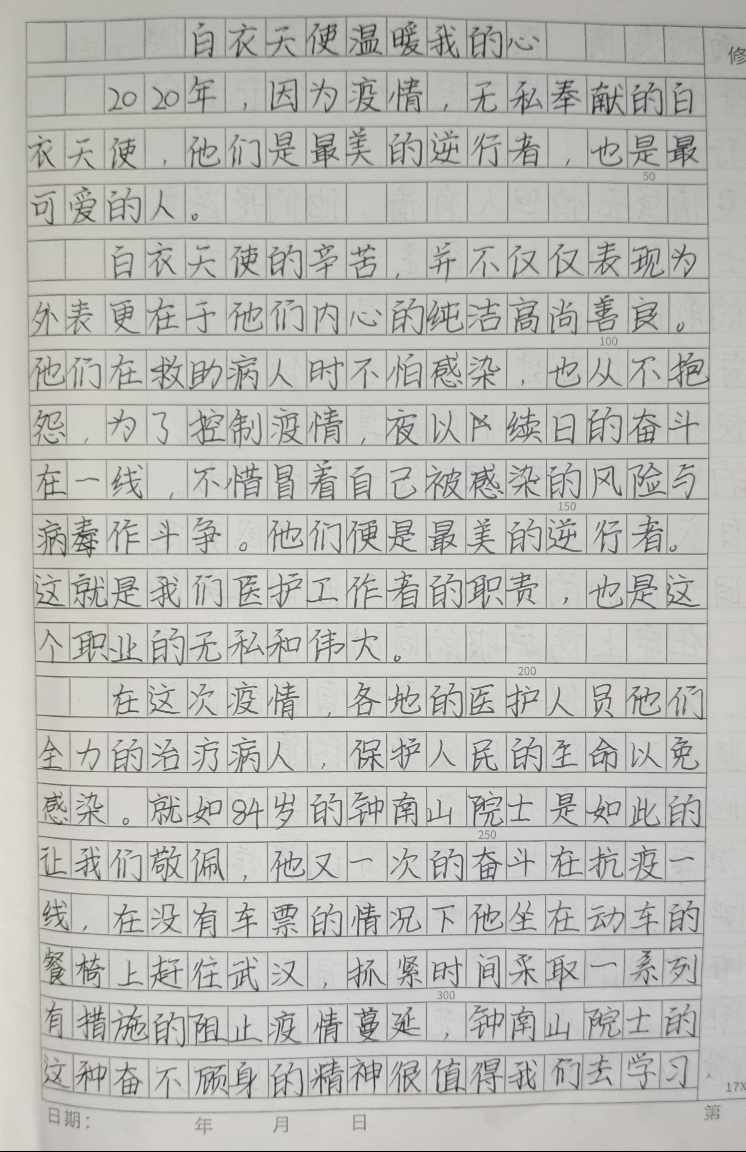 白衣天使温暖我的心
修
2020年，因为疫情，无私奉献的白
衣天使，他们是最美的逆行者，也是最
50
可爱的人。
白衣天使的辛苦，并不仅仅表现为
外表更在于他们内心的纯洁高尚善良。
100
他们在救助病人时不怕感染，也从不抱
怨，为了控制疫情，夜以续日的奋斗
在一线，不惜冒着自己被感染的风险与
150
病毒作斗争。他们便是最美的逆行者。
这就是我们医护工作者的职责，也是这
个职业的无私和伟大。
200
在这次疫情，各地的医护人员他们
全力的治疗病人，保护人民的生命以免
感染。就如84岁的钟南山院士是如此的
250
让我们敬佩，他又一次的奋斗在抗疫一
线，在没有车票的情况下他坐在动车的
餐椅上赶往武汉，抓紧时间采取一系列
300
有措施的阻止疫情蔓延，钟南山院士的
这种奋不顾身的精神很值得我们去学习
17X
日期： 年 月 日 第